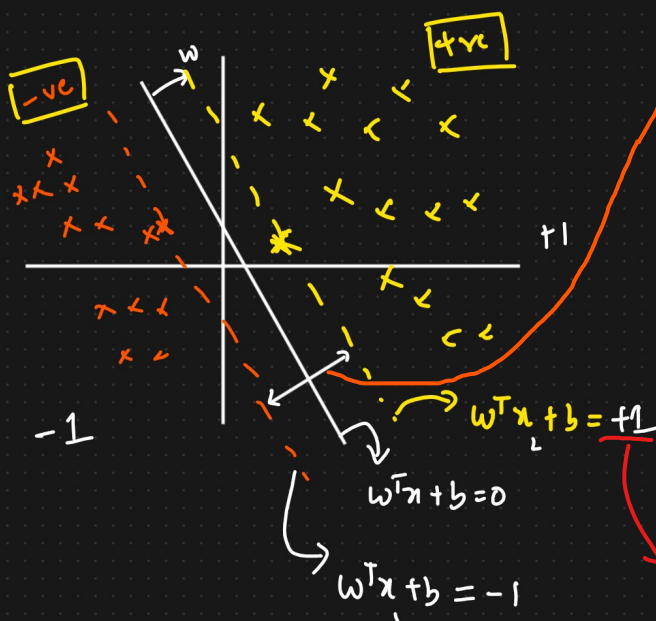 w
+ve
-ve
+1
-1
wᵀx₂ + b = +1
wᵀx + b = 0
wᵀx₁ + b = -1